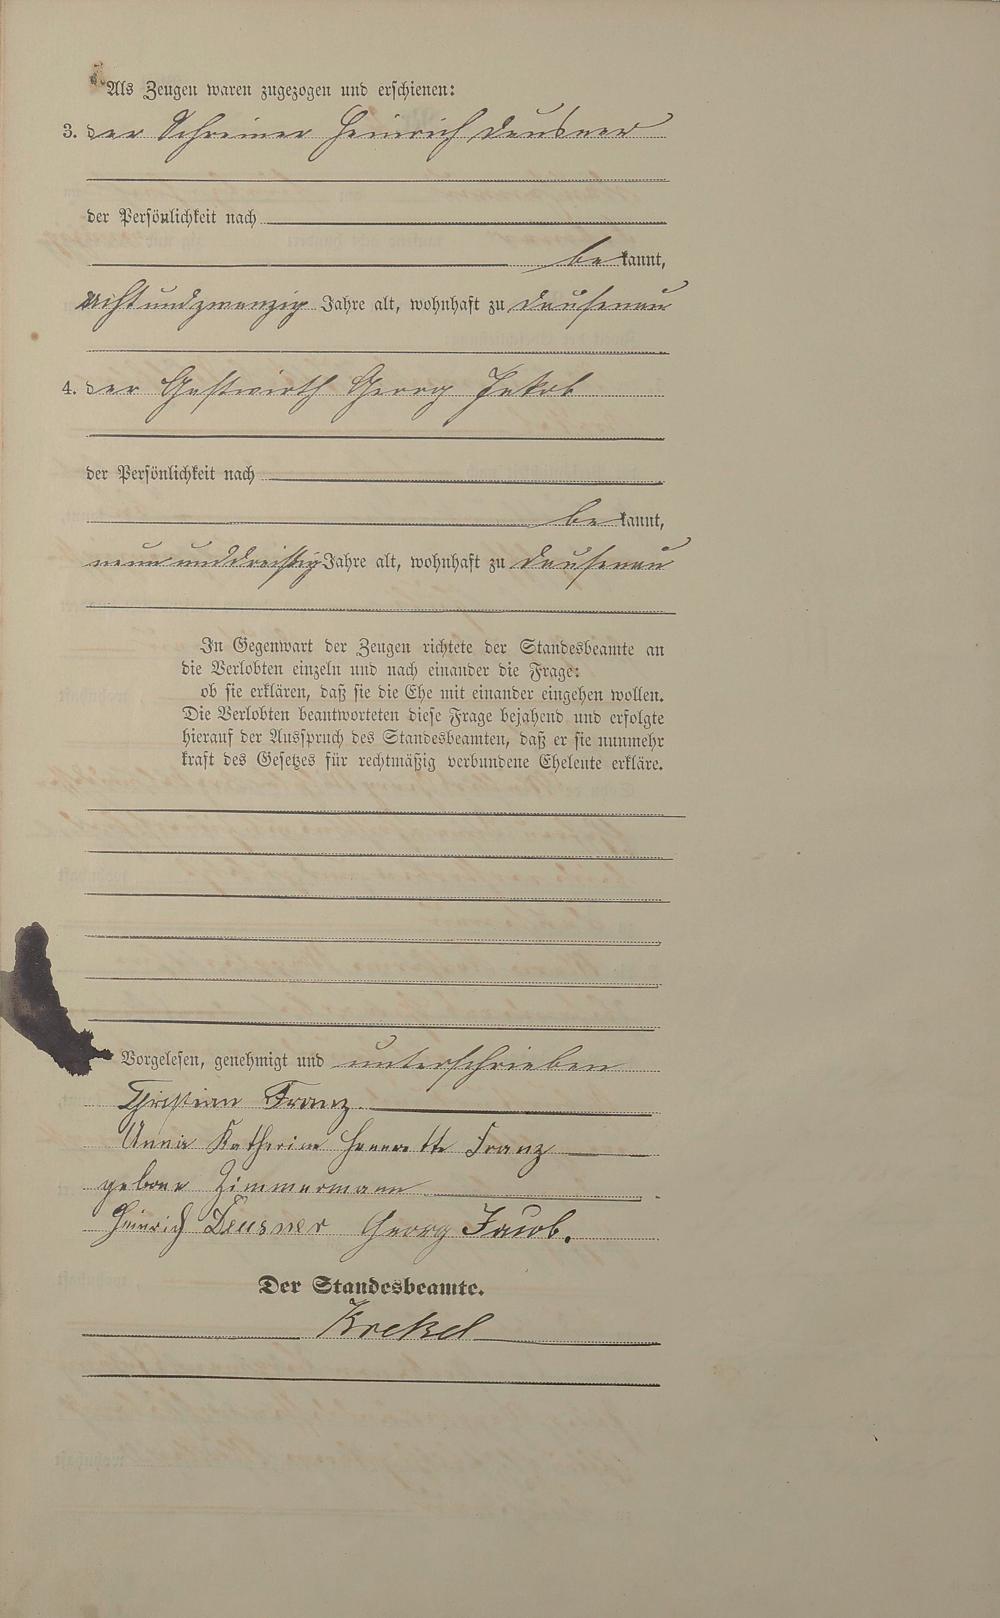 Als Zeugen waren zugezogen und erschienen:
3. der Schreiner Heinrich Deusner
der Persönlichkeit nach
be kannt,
achtundzwanzig Jahre alt, wohnhaft zu Dausenau
4. der Gastwirth Georg Jakob
der Persönlichkeit nach
be kannt,
neununddreißig Jahre alt, wohnhaft zu Dausenau
In Gegenwart der Zeugen richtete der Standesbeamte an
die Verlobten einzeln und nach einander die Frage:
ob sie erklären, daß sie die Ehe mit einander eingehen wollen.
Die Verlobten beantworteten diese Frage bejahend und erfolgte
hierauf der Ausspruch des Standesbeamten, daß er sie nunmehr
kraft des Gesetzes für rechtmäßig verbundene Eheleute erkläre.
Vorgelesen, genehmigt und unterschrieben
Christian Franz
Anna Katharine Henrette Franz
geborne Zimmermann
Heinrich Deusner Georg Jacob.
Der Standesbeamte.
Krekel